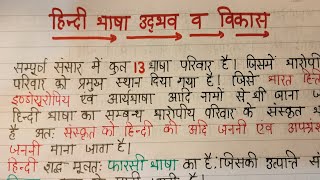 हिन्दी भाषा उद्भव व विकास
सम्पूर्ण संसार में कुल 13 भाषा परिवार है। जिसमें भारोपी
परिवार को प्रमुख स्थान दिया गया है। जिसे भारत
इण्डोयूरोपिय एवं आर्यभाषा आदि नामों से भी जाना ज
हिन्दी भाषा का सम्बन्ध भारोपीय परिवार के संस्कृत भ
है अतः संस्कृत को हिन्दी की आदि जननी एवं अपभ्रं
जननी माना जाता है।
हिन्दी शब्द मूलतः फारसी भाषा का है। जिसकी उत्पत्ति सं